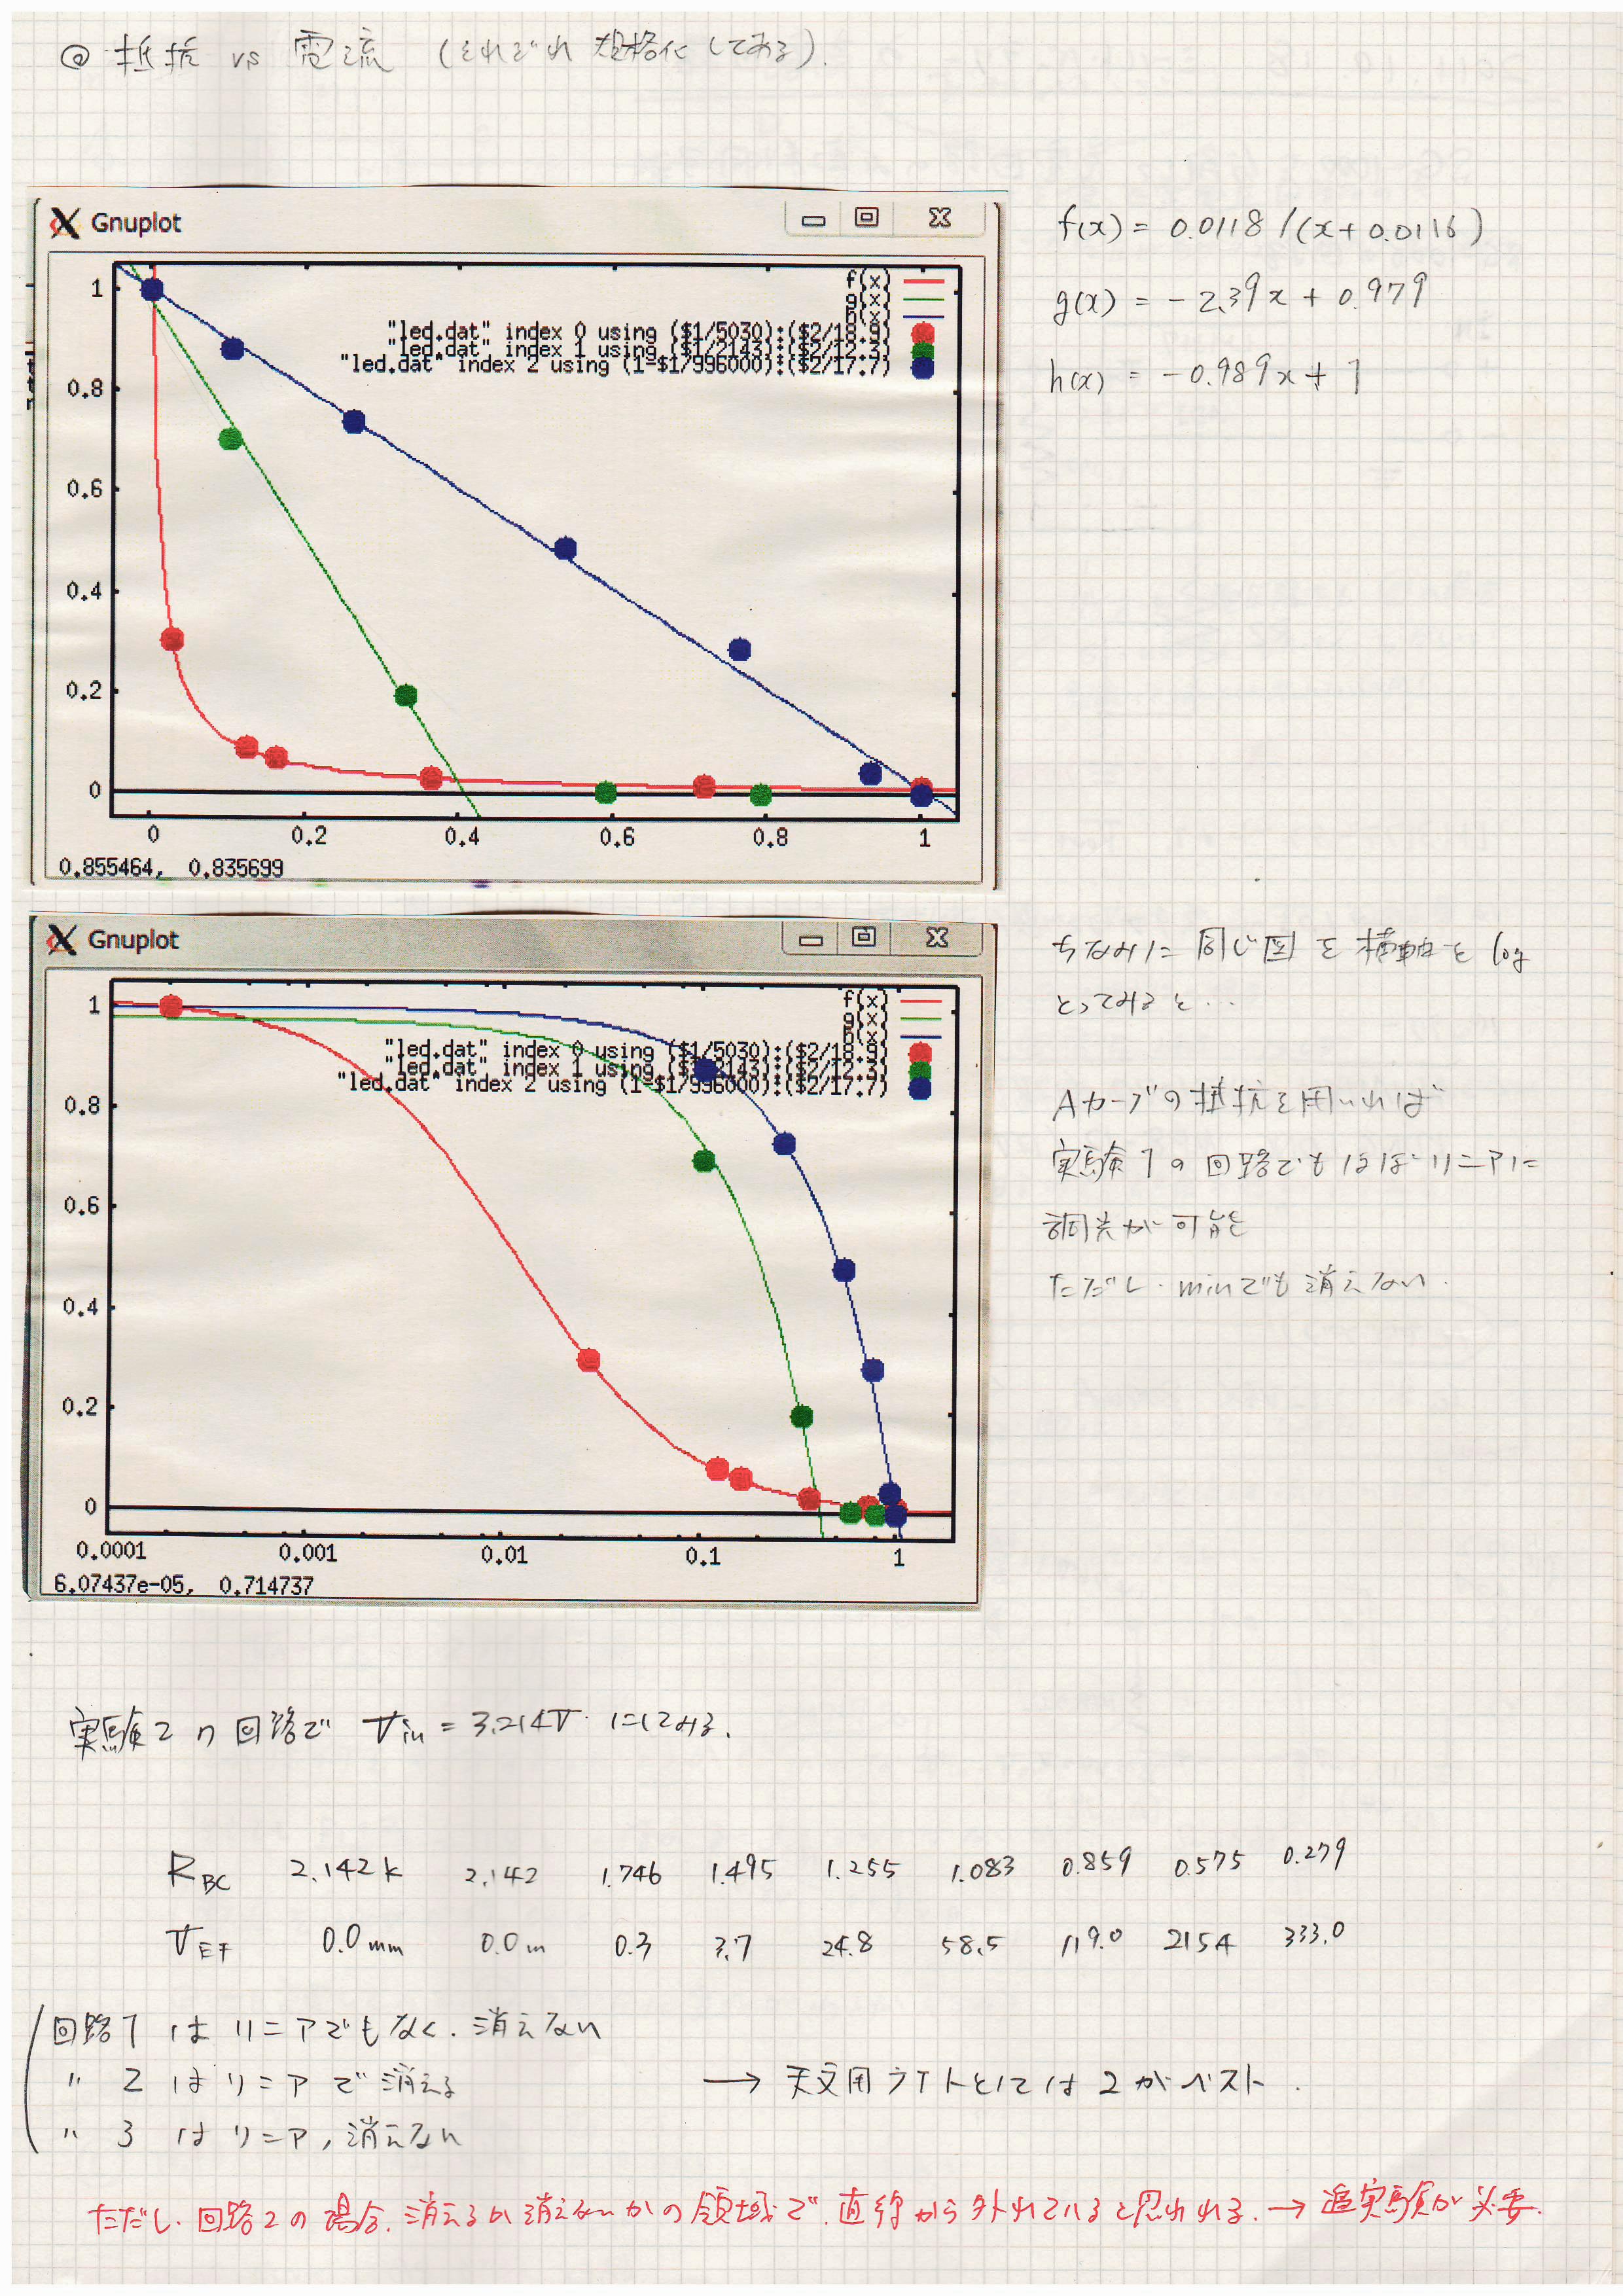 ◎ 抵抗 vs 電流 (それぞれ規格化してある).
Gnuplot
f(x)
g(x)
h(x)
"led.dat" index 0 using ($1/5030):($2/18.9)
"led.dat" index 1 using ($1/2143):($2/12.3)
"led.dat" index 2 using (1-$1/996000):($2/17.7)
1
0.8
0.6
0.4
0.2
0
0 0.2 0.4 0.6 0.8 1
0.855464, 0.835699
f(x) = 0.0118 / (x + 0.0116)
g(x) = - 2.39x + 0.979
h(x) = - 0.989x + 1
Gnuplot
f(x)
g(x)
h(x)
"led.dat" index 0 using ($1/5030):($2/18.9)
"led.dat" index 1 using ($1/2143):($2/12.3)
"led.dat" index 2 using (1-$1/996000):($2/17.7)
1
0.8
0.6
0.4
0.2
0
0.0001 0.001 0.01 0.1 1
6.07437e-05, 0.714737
ちなみに 同じ図を横軸を log
とってみると...
Aカーブの抵抗を用いれば
実験1の回路でもほぼリニアに
調光が可能
ただし、minでも消えない.
実験2の回路で Vin = 3.214V にしてみる.
RBC 2.142k 2.142 1.746 1.495 1.255 1.083 0.859 0.575 0.279
VEF 0.0mm 0.0m 0.3 3.7 24.8 58.5 119.0 215.4 333.0
回路1 はリニアでもなく、消えない
〃 2 はリニアで消える → 天文用ライトとしては2がベスト.
〃 3 はリニア, 消えない
ただし、回路2の場合、消えるか消えないかの領域で、直線から外れていると思われる. → 追実験が必要.